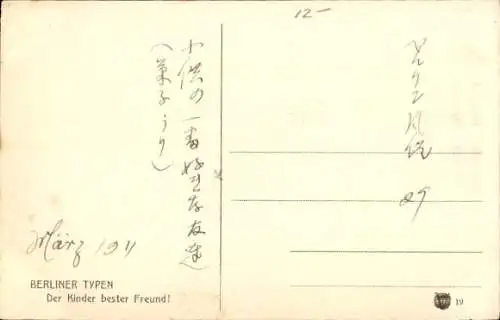 12-
ベルリン風俗 29
小供の一番好きな友達
(菓子うり)
März 1911
BERLINER TYPEN
Der Kinder bester Freund!
19